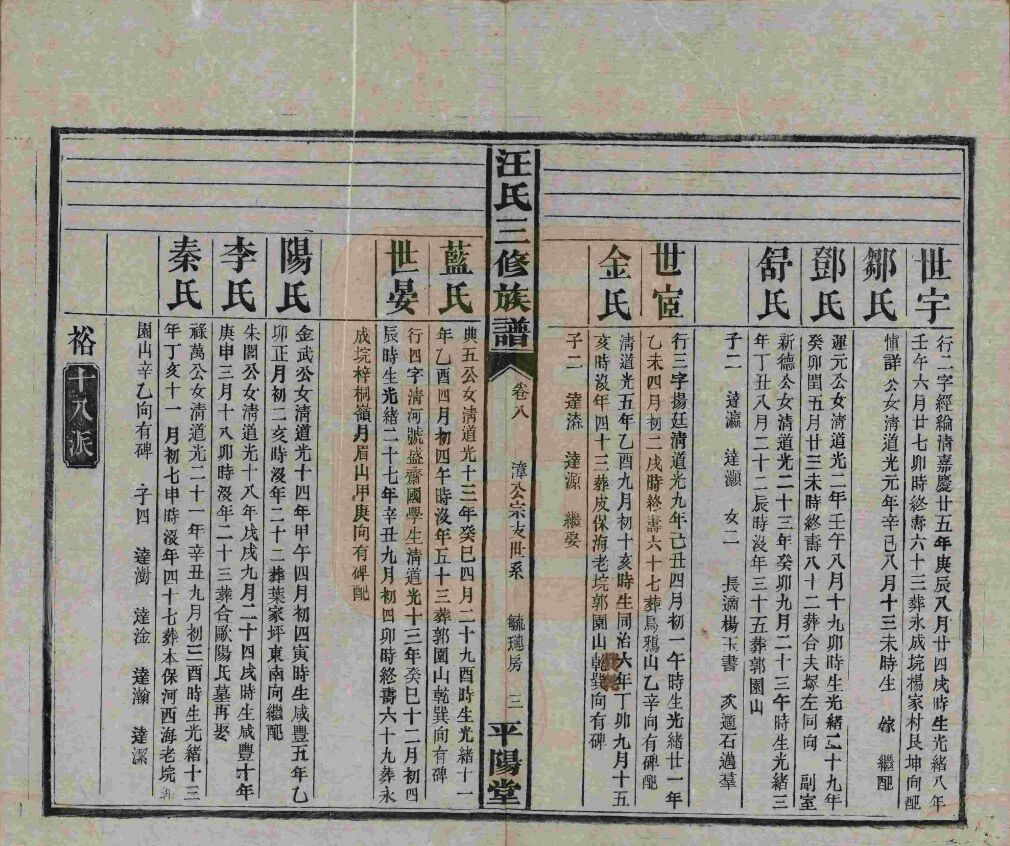 世宇
行二字經綸清嘉慶廿五年庚辰八月廿四戌時生光緒八年
壬午六月廿七卯時終壽六十三葬永成垸楊家村艮坤向配
鄒氏
慎詳公女清道光元年辛巳八月十三未時生 嫁 繼配
鄧氏
運元公女清道光二年壬午八月十九卯時生光緒二十九年
癸卯閏五月廿三未時終壽八十二葬合夫塚左同向 副室
舒氏
新德公女清道光二十三年癸卯九月二十三午時生光緒三
年丁丑八月二十二辰時沒年三十五葬郭園山
子二 達瀛 達灝 女二 長適楊玉書 次適石邁羣
世宦
行三字揚廷清道光九年己丑四月初一午時生光緒廿一年
乙未四月初二戌時終壽六十七葬鳥鴉山乙辛向有碑配
金氏
清道光五年乙酉九月初十亥時生同治六年丁卯九月十五
亥時沒年四十三葬皮保海老垸郭園山乾巽向有碑
子二 達添 達源 繼娶
汪氏三修族譜
卷八
漳公宗支世系
毓璁房 三
平陽堂
藍氏
典五公女清道光十三年癸巳四月二十九酉時生光緒十一
年乙酉四月初四午時沒年五十三葬郭園山乾巽向有碑
世晏
行四字清河號盛齋國學生清道光十三年癸巳十二月初四
辰時生光緒二十七年辛丑九月初四卯時終壽六十九葬永
成垸梓桐嶺月眉山甲庚向有碑配
陽氏
金武公女清道光十四年甲午四月初四寅時生咸豐五年乙
卯正月初二亥時沒年二十二葬葉家坪東南向繼配
李氏
朱閣公女清道光十八年戊戌九月二十四戌時生咸豐十年
庚申三月十八卯時沒年二十三葬合歐陽氏墓再娶
秦氏
祿萬公女清道光二十一年辛丑九月初三酉時生光緒十三
年丁亥十一月初七申時沒年四十七葬本保河西海老垸郭
園山辛乙向有碑 子四 達澍 達淦 達瀚 達潔
裕
十八派